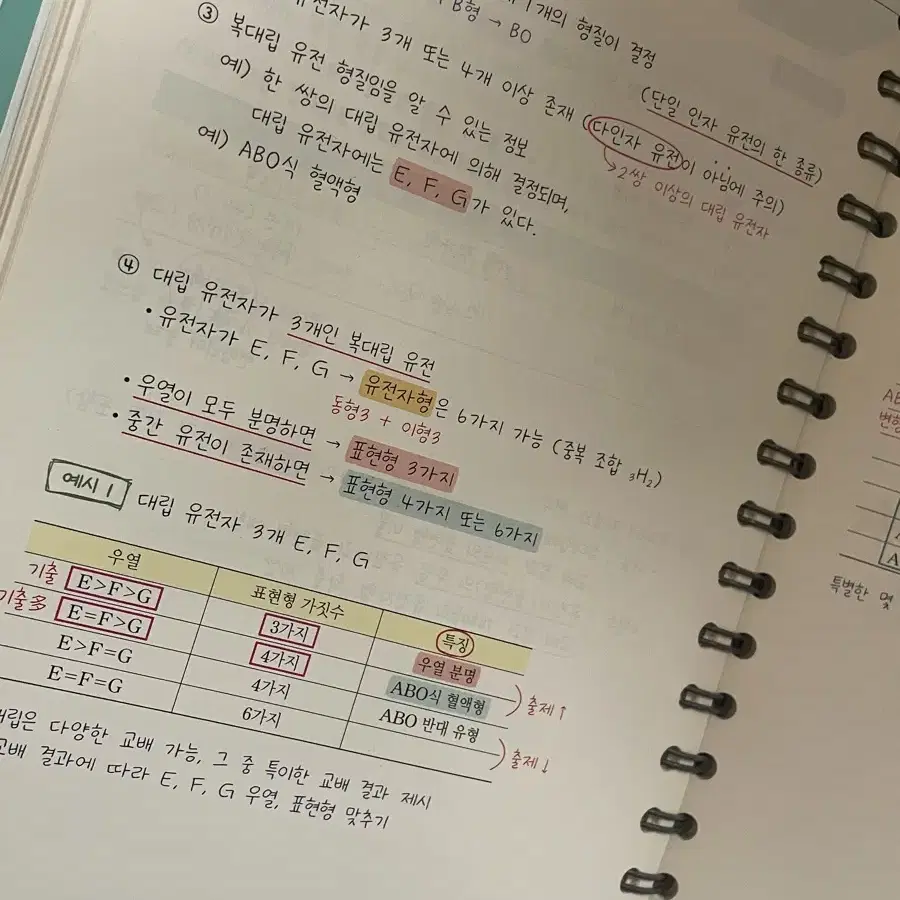 1개의 형질이 결정
B형 → BO
유전자가 3개 또는 4개 이상 존재 (다인자 유전이 아님에 주의)
(단일 인자 유전의 한 종류)
→ 2쌍 이상의 대립 유전자
③ 복대립 유전 형질임을 알 수 있는 정보
예) 한 쌍의 대립 유전자에 의해 결정되며,
대립 유전자에는 E, F, G가 있다.
예) ABO식 혈액형
④ 대립 유전자가 3개인 복대립 유전
• 유전자가 E, F, G → 유전자형은 6가지 가능 (중복 조합 ₃H₂)
동형3 + 이형3
• 우열이 모두 분명하면 → 표현형 3가지
• 중간 유전이 존재하면 → 표현형 4가지 또는 6가지
예시 1 대립 유전자 3개 E, F, G
우열 표현형 가짓수 특징
기출 E>F>G 3가지 우열 분명
기출多 E=F>G 4가지 ABO식 혈액형 출제↑
E>F=G 4가지 ABO 반대 유형
E=F=G 6가지 출제↓
대립은 다양한 교배 가능, 그 중 특이한 교배 결과 제시
교배 결과에 따라 E, F, G 우열, 표현형 맞추기
특별한 몇